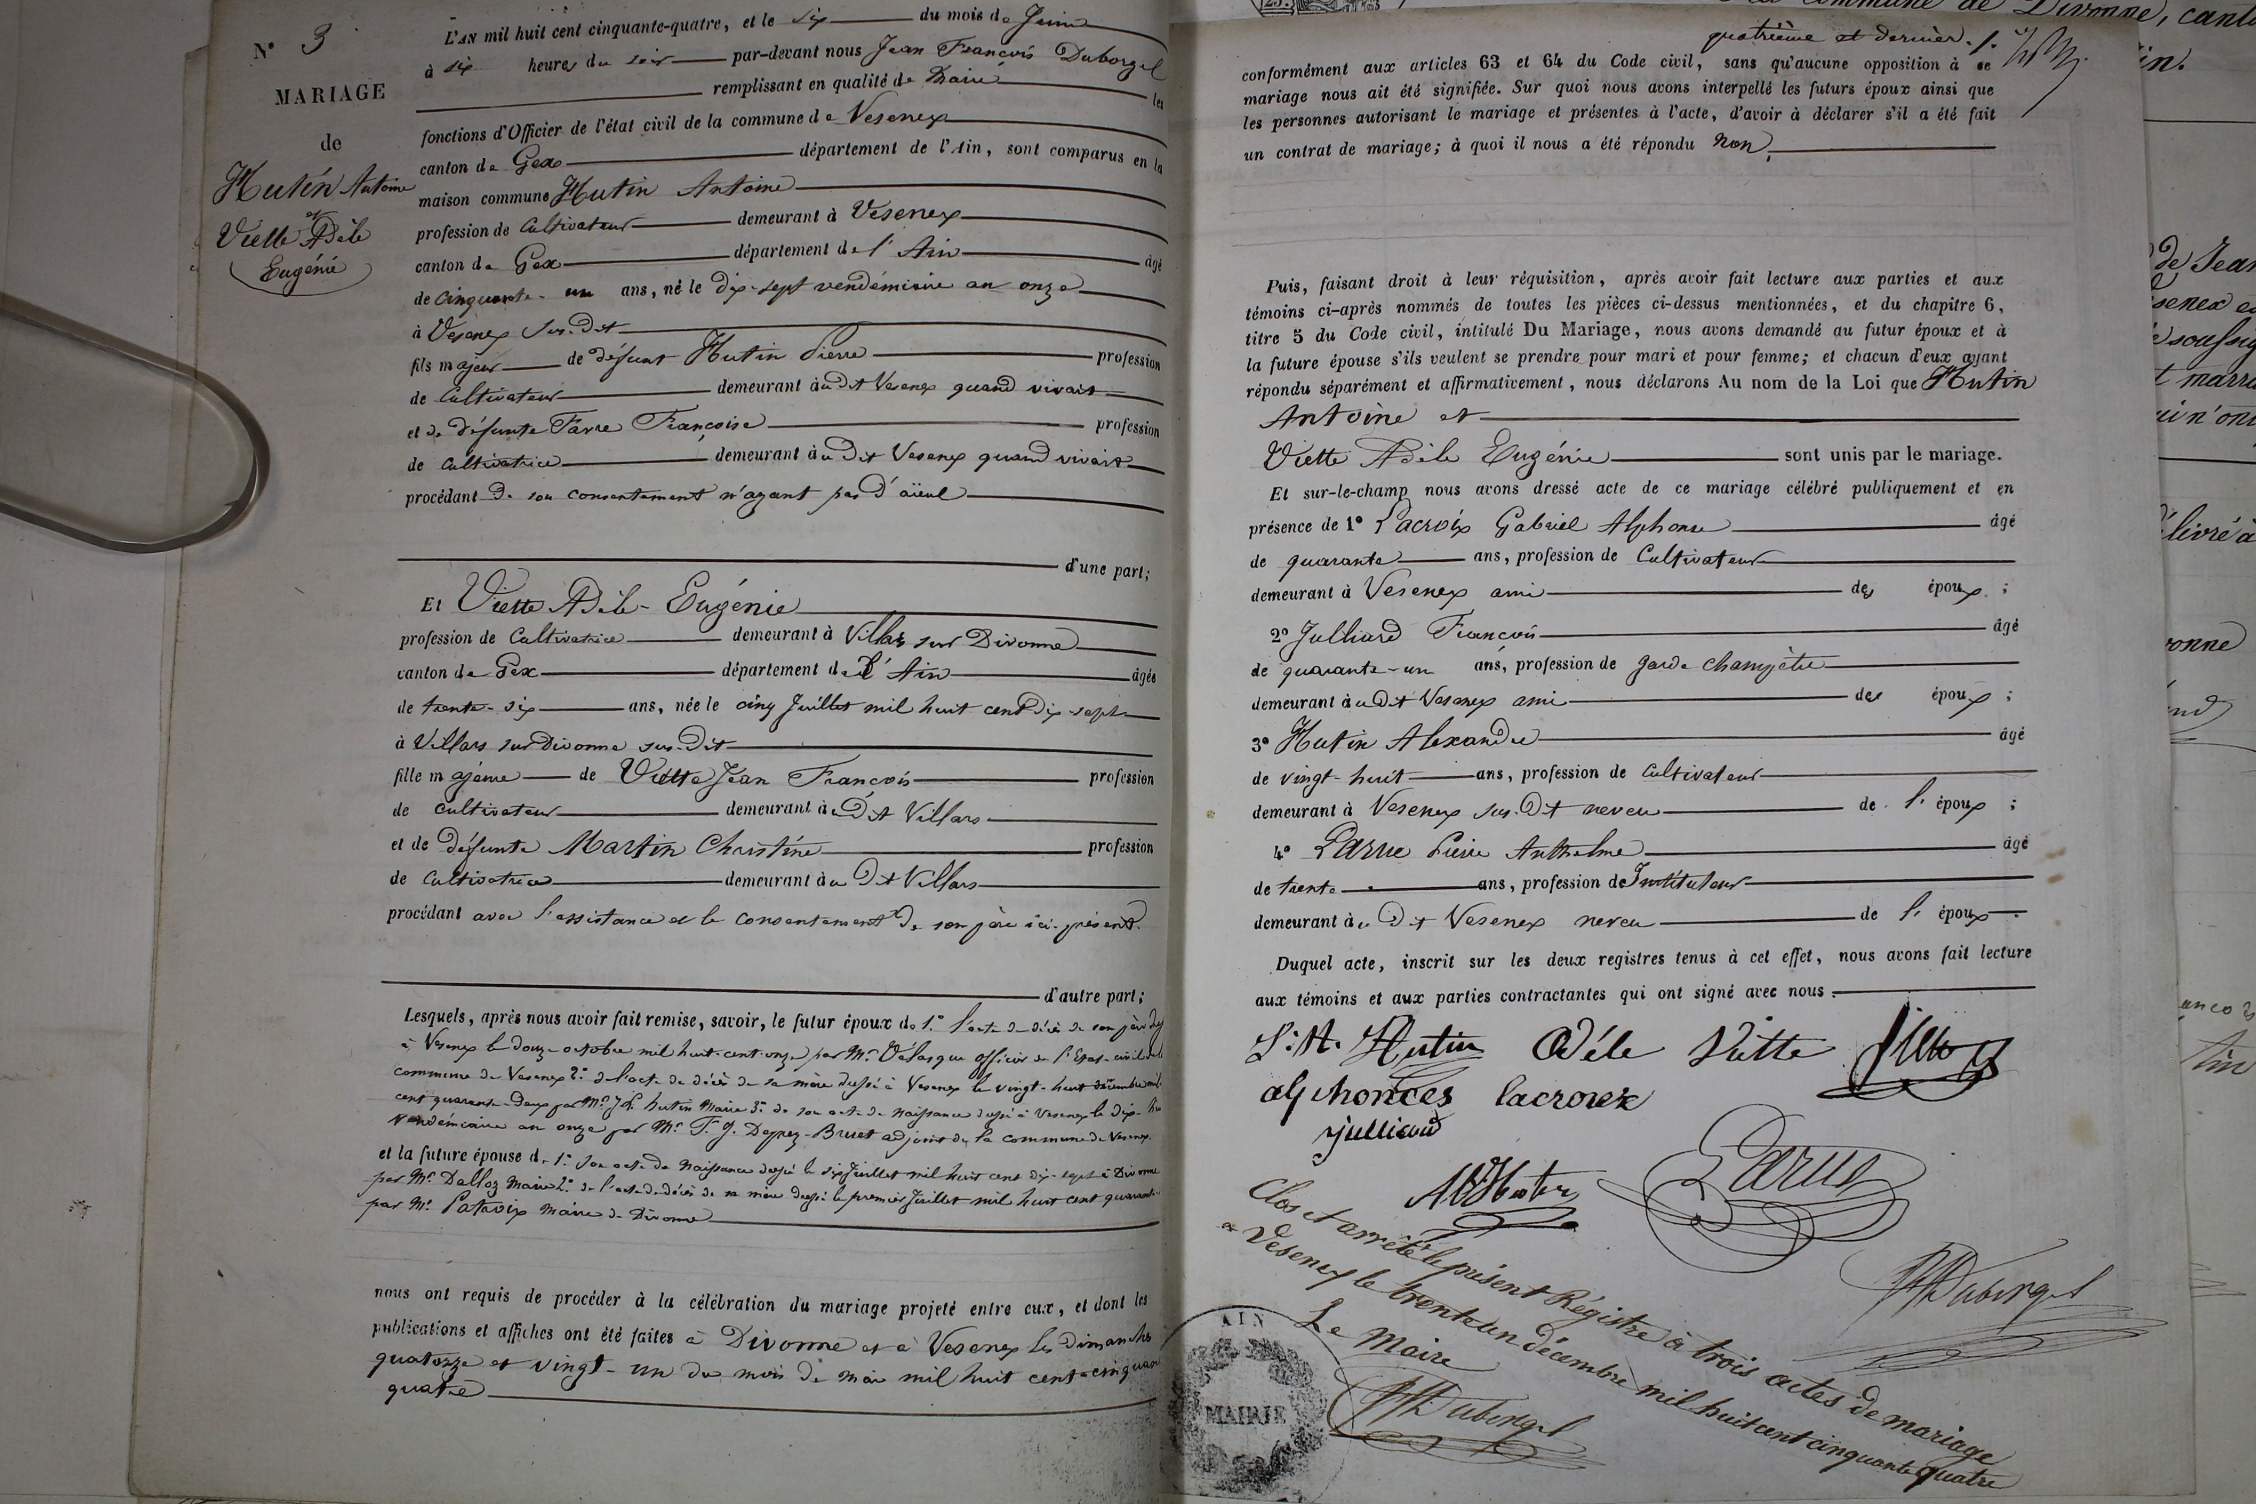 N° 3
MARIAGE
de
Hutin Antoine
et
Viette Adèle
Eugénie
L'AN mil huit cent cinquante-quatre, et le six du mois de Juin
à six heures du soir par-devant nous Jean François Duborgel
remplissant en qualité de Maire les
fonctions d'Officier de l'état civil de la commune de Vesenex
canton de Gex département de l'Ain, sont comparus en la
maison commune Hutin Antoine
profession de Cultivateur demeurant à Vesenex
canton de Gex département de l'Ain âgé
de cinquante-un ans, né le dix-sept vendémiaire an onze
à Vesenex sus-dit
fils majeur de défunt Hutin Pierre profession
de Cultivateur demeurant à dit Vesenex quand vivait
et de défunte Favre Françoise profession
de Cultivatrice demeurant à dit Vesenex quand vivait
procédant de son consentement n'ayant pas d'aïeul
d'une part;
Et Viette Adèle-Eugénie
profession de Cultivatrice demeurant à Villars sur Divonne
canton de Gex département de l'Ain âgée
de trente-six ans, née le cinq Juillet mil huit cent dix-sept
à Villars sur Divonne sus-dit
fille majeure de Viette Jean François profession
de cultivateur demeurant à dit Villars
et de défunte Martin Christine profession
de Cultivatrice demeurant à dit Villars
procédant avec l'assistance et le consentement de son père ici présent.
d'autre part;
Lesquels, après nous avoir fait remise, savoir, le futur époux de 1.° l'acte de décès de son père
à Vesenex le douze octobre mil huit-cent-onze par Mr. officier de l'Etat-civil
commune de Vesenex 2.° de l'acte de décès de sa mère dressé à Vesenex le vingt-huit décembre mil
cent quarante-deux par Mr. Hutin Maire 3.° de son acte de naissance dressé à Vesenex le dix-
vendémiaire an onze par Mr. Deprez-Bruet adjoint de la commune de Vesenex
et la future épouse de 1.° son acte de naissance dressé le six Juillet mil huit cent dix-sept à Divonne
par Mr. Dalloz Maire 2.° de l'acte de décès de sa mère dressé le premier Juillet mil huit cent quarante
par Mr. Maire de Divonne
nous ont requis de procéder à la célébration du mariage projeté entre eux, et dont les
publications et affiches ont été faites à Divonne et à Vesenex les dimanches
quatorze et vingt-un du mois de mai mil huit cent-cinquante
quatre
quatrième et dernier
conformément aux articles 63 et 64 du Code civil, sans qu'aucune opposition à ce
mariage nous ait été signifiée. Sur quoi nous avons interpellé les futurs époux ainsi que
les personnes autorisant le mariage et présentes à l'acte, d'avoir à déclarer s'il a été fait
un contrat de mariage; à quoi il nous a été répondu non,
Puis, faisant droit à leur réquisition, après avoir fait lecture aux parties et aux
témoins ci-après nommés de toutes les pièces ci-dessus mentionnées, et du chapitre 6,
titre 5 du Code civil, intitulé Du Mariage, nous avons demandé au futur époux et à
la future épouse s'ils veulent se prendre pour mari et pour femme; et chacun d'eux ayant
répondu séparément et affirmativement, nous déclarons Au nom de la Loi que Hutin
Antoine et
Viette Adèle Eugénie sont unis par le mariage.
Et sur-le-champ nous avons dressé acte de ce mariage célébré publiquement et en
présence de 1° Lacroix Gabriel Alphonse âgé
de quarante ans, profession de Cultivateur
demeurant à Vesenex ami des époux;
2° Julliard François âgé
de quarante-un ans, profession de garde champêtre
demeurant à dit Vesenex ami des époux;
3° Hutin Alexandre âgé
de vingt-huit ans, profession de Cultivateur
demeurant à Vesenex sus-dit neveu de l'époux;
4° Larue Pierre Anthelme âgé
de trente ans, profession de Instituteur
demeurant à dit Vesenex neveu de l'époux.
Duquel acte, inscrit sur les deux registres tenus à cet effet, nous avons fait lecture
aux témoins et aux parties contractantes qui ont signé avec nous.
Hutin Adéle Viette
alphonces lacroix
julliard
Larue
Duborgel
Clos et arrêté le présent Régistre à trois actes de mariage
à Vesenex le trente un décembre mil huit cent cinquante quatre
Le Maire
Duborgel
AIN
MAIRIE